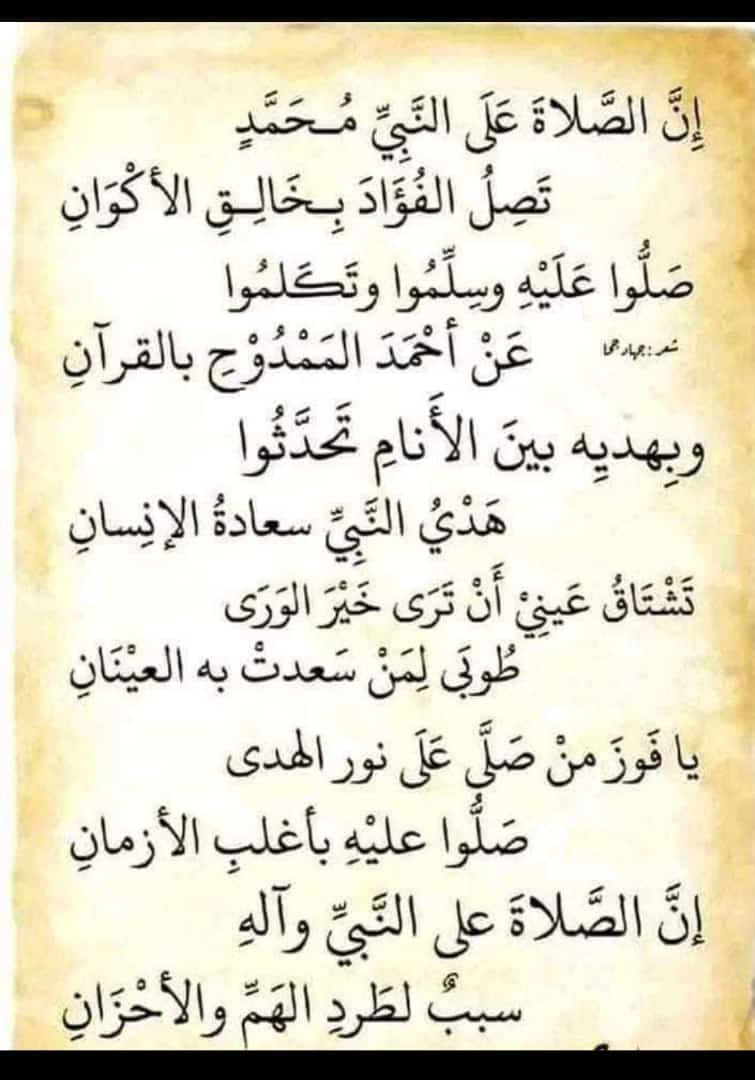 إِنَّ الصَّلاةَ عَلَى النَّبِيِّ مُحَمَّدٍ
تَصِلُ الفُؤَادَ بِخَالِقِ الأكْوَانِ
صَلُّوا عَلَيْهِ وسِلِّمُوا وتَكَلمُوا
شعر : جهاد جحا
عَنْ أحْمَدَ المَمْدُوْحِ بالقرآنِ
وبِهديِه بينَ الأَنامِ تَحدَّثُوا
هَدْيُ النَّبِيِّ سعادةُ الإنِسانِ
تَشْتَاقُ عَينِيْ أَنْ تَرَى خَيْرَ الوَرَى
طُوبَى لِمَنْ سَعدتْ به العيْنَانِ
يا فَوزَ منْ صَلَّى عَلَى نور الهدى
صَلُّوا عليْهِ بأغلبِ الأزمانِ
إنَّ الصَّلاةَ على النَّبيِّ وآلهِ
سببٌ لطَردِ الهَمِّ والأحْزَانِ